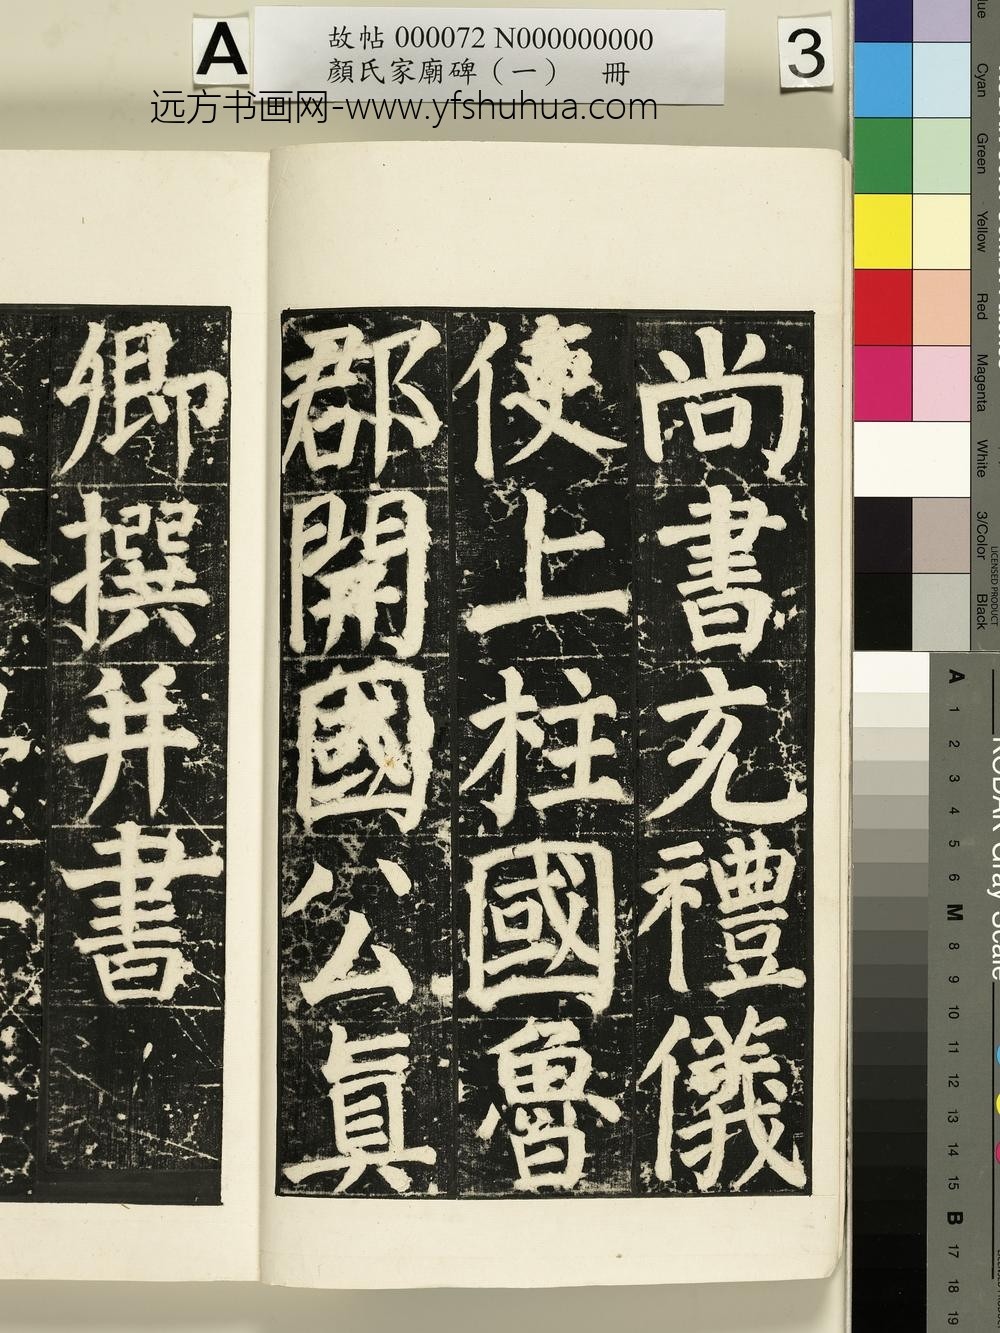 A
故帖 000072 N000000000
顏氏家廟碑（一） 冊
3
远方书画网-www.yfshuhua.com
尚書充禮儀
使上柱國魯
郡開國公真
卿撰并書
Cyan
Green
Yellow
Red
Magenta
White
3/Color
Black
LICENSED PRODUCT
A 1 2 3 4 5 6 M 8 9 10 11 12 13 14 15 B 17 18 19